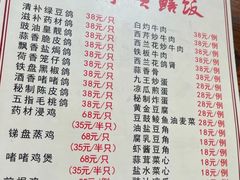 鳝饭
清补绿豆鸽 38元/只
滋补药材鸽 38元/只
豉油皇靓鸽 38元/只
蒜香脆皮鸽 38元/只
飘香盐焗鸽 38元/只
荷香笼仔鸽 38元/只
铁盘黑椒鸽 38元/只
酒香啫啫鸽 38元/只
秘制陈皮鸽 38元/只
五指毛桃鸽 38元/只
药材浸鸡 68元/只
(35元/半只)
锑盘蒸鸡 68元/只
(35元/半只)
啫啫鸡煲 68元/只
(35元/半只)
68元/只
白灼牛肉
西芹炒牛肉 38元/例
西兰花牛肉 38元/例
铁板牛肉 38元/例
西兰花鸽肾 38元/例
蒜香骨 38元/例
九王炒蛋 28元/例
凉瓜煎蛋 28元/例
秘制金沙蛋 28元/例
黄金豆腐 28元/例
豆豉鲮鱼油麦菜 28元/例
油盐豆角 28元/例
腐乳豆角 18元/例
虾酱豆角 18元/例
蒜茸菜心 18元/例
蒜茸豆苗